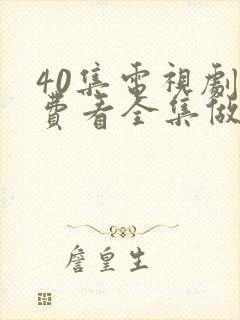 40集電視劇
費看全集做
詹皇生